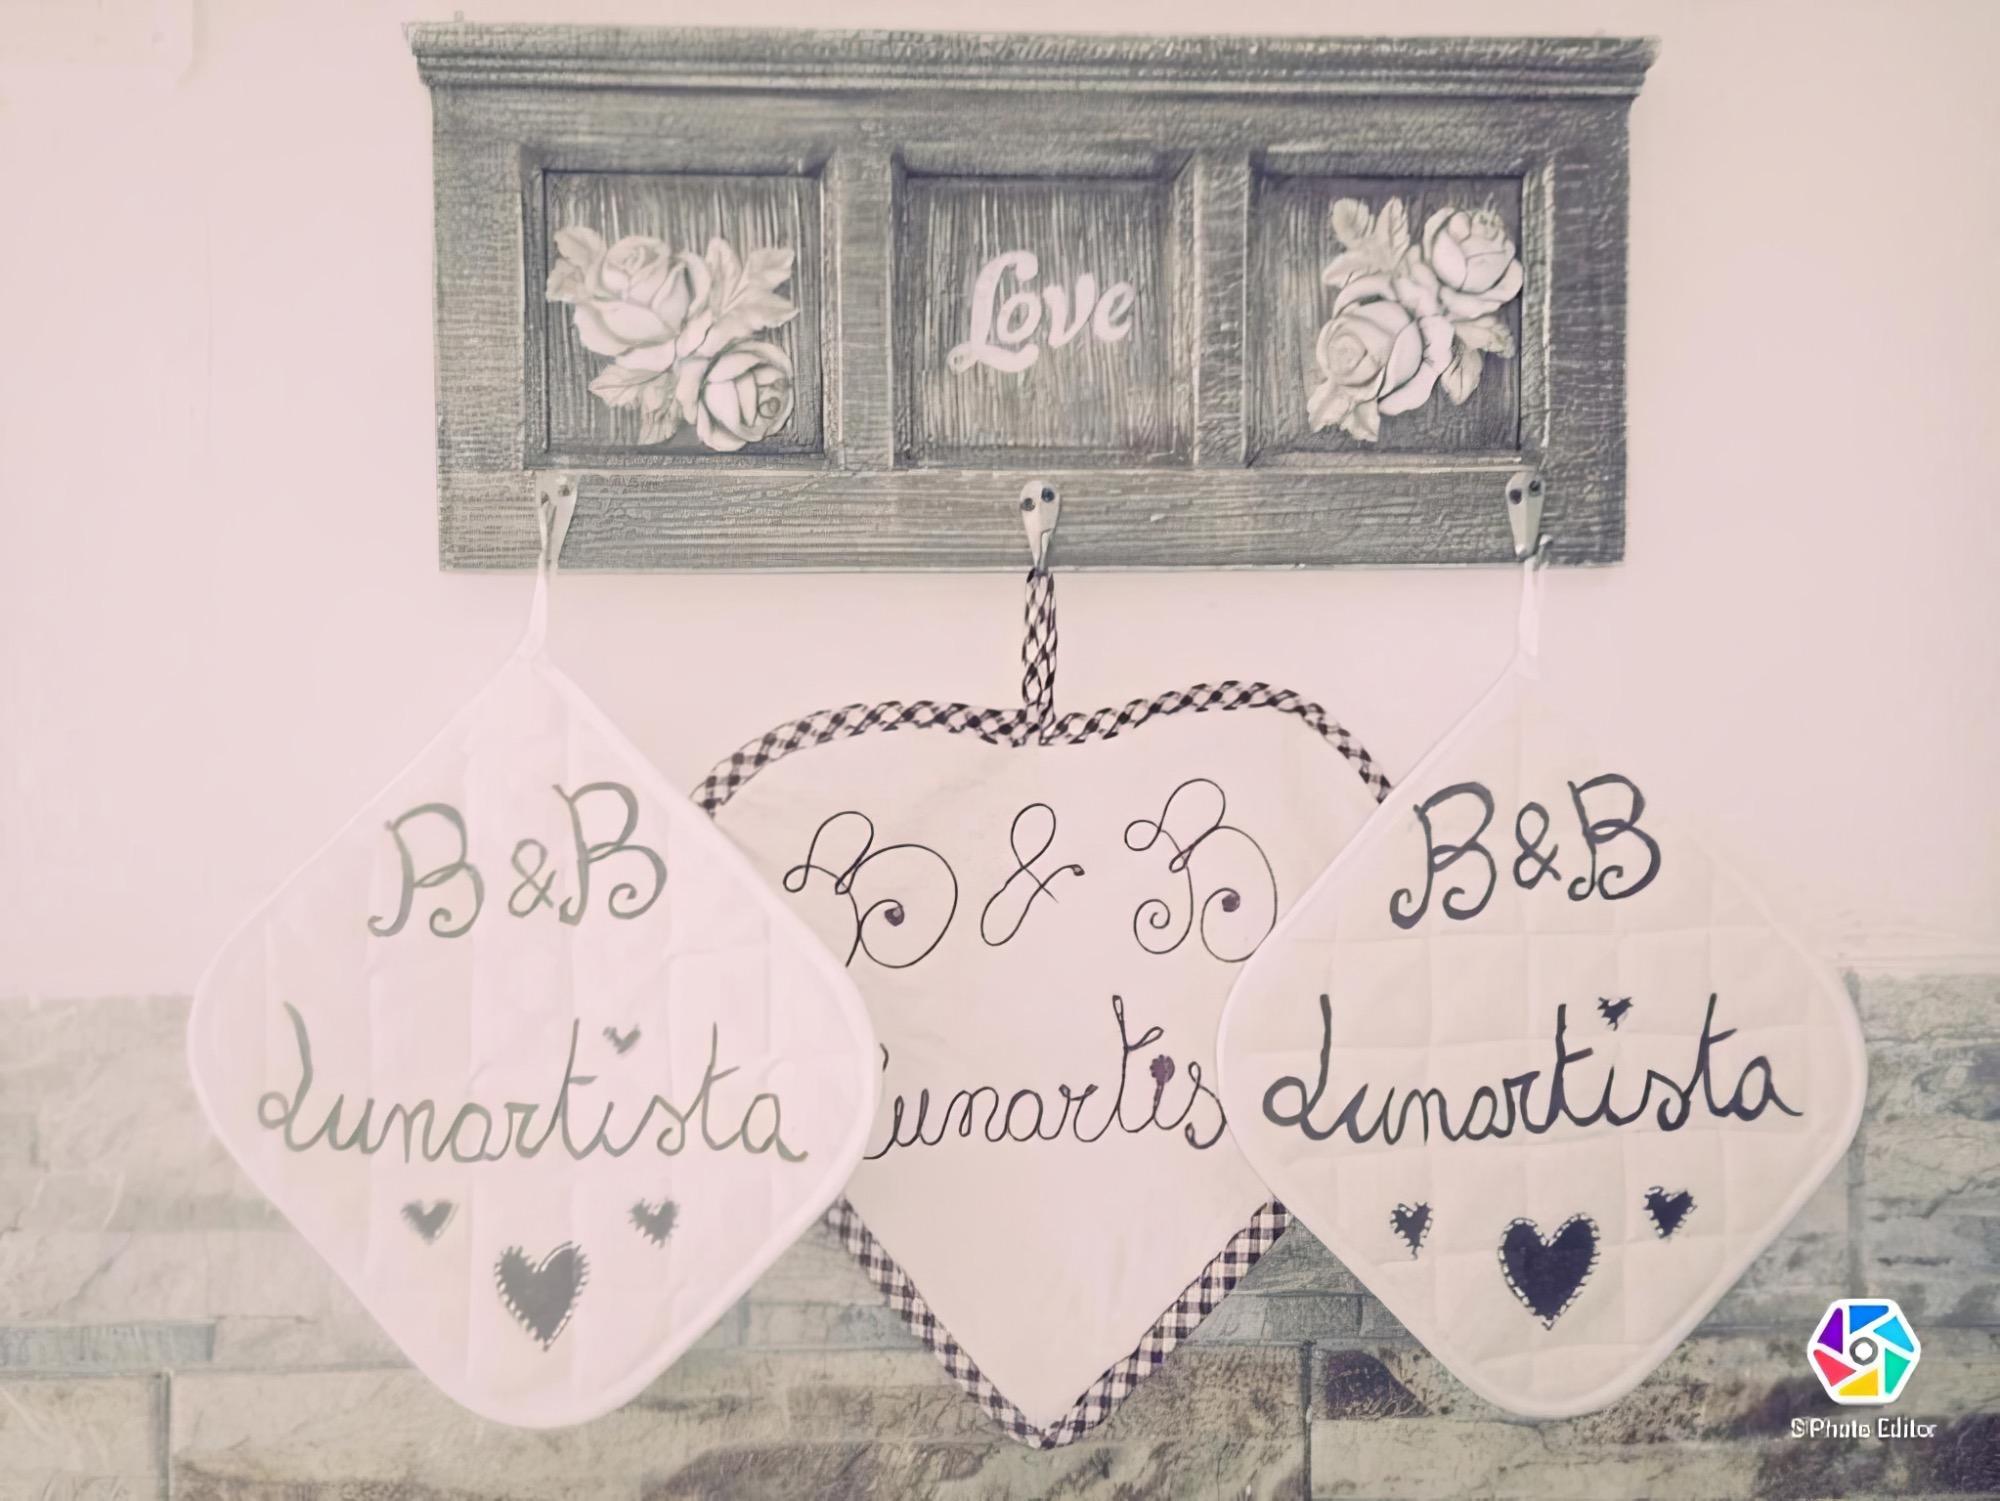 Love
B & B
Lunartista
B & B
Lunartis
B & B
Lunartista
S Photo Editor